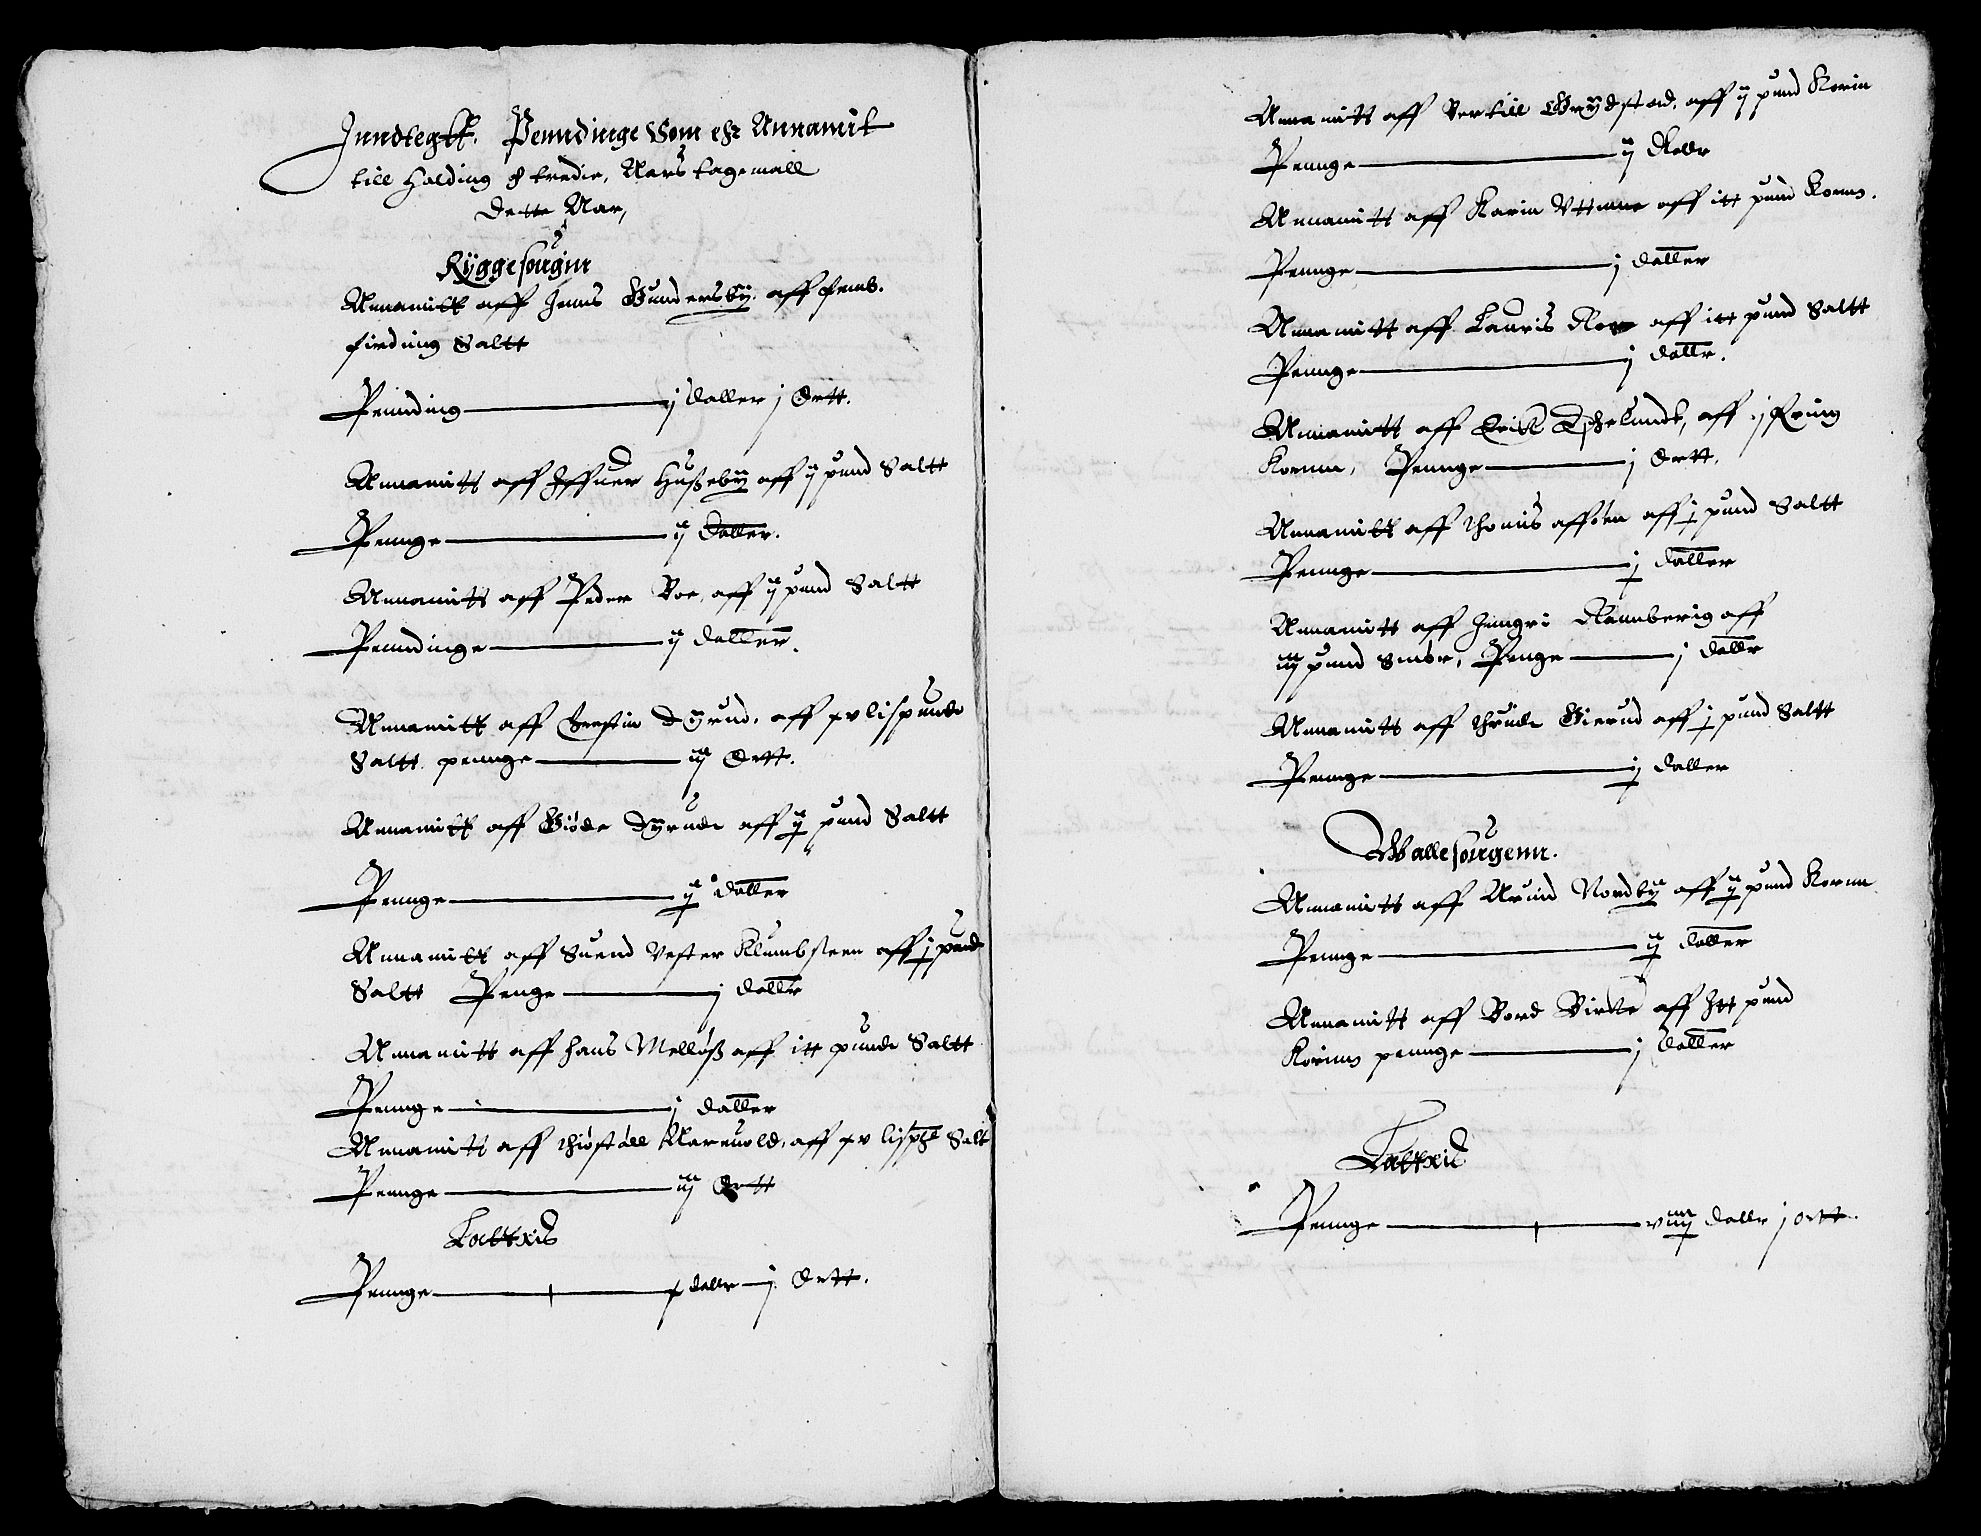 Inndtegtt. Penndinge Som ehr Annamit
till holding och tredie, Aars tagemall
Dette Aar,
Ryggesougnn
Annamitt aff Jenns Gundersby. aff femb.
firding Saltt
Penndinng j daller j Ortt.
Annamitt aff Iffuer Hußeby aff ij pund Saltt
Pennge ij Daller.
Annamitt aff Peder Boe, aff ij pund Saltt
Penndinge ij daller.
Annamitt aff Dyrud, aff xv lispunde
Saltt pennge iij Ortt.
Annamitt aff Gióde Dyrude aff ij pund Saltt
Pennge ij daller
Annamitt aff Suend Vester Klumbsteen aff j pund
Saltt Penge j dallr
Annamitt aff hans Mellóß aff itt punde Saltt
Pennge j daller
Annamitt aff thióstóll Aareuold, aff xv lispd Salt
Pennge iij Ortt
Lattxis
Pennge x dallr j Ortt.
Annamitt aff Bertill Grydstad, aff ij pund Korn
Pennge ij dallr
Annamitt aff Karin Vttnne aff itt pund Kornn.
Pennge j daller
Annamitt aff Lauris Roe aff itt pund Saltt
Pennge j dallr.
Annamitt aff Erich Espelundt, aff j fring
Kornn, Pennge j Ortt.
Annamitt aff thomis affóen aff j pund Saltt
Pennge j daller
Annamitt aff Jungri Rannberig aff
iij pund Smór, Penge j dallr
Annamitt aff thrude Gierud aff j pund Saltt
Pennge ij daller
Wallesougenn.
Annamitt aff Auind Nordby aff ij pund Kornn
Pennge ij daller
Annamitt aff Bord Birke aff Itt pund
Kornn pennge j daller
Lattxis
Pennge viiij dallr j ortt.